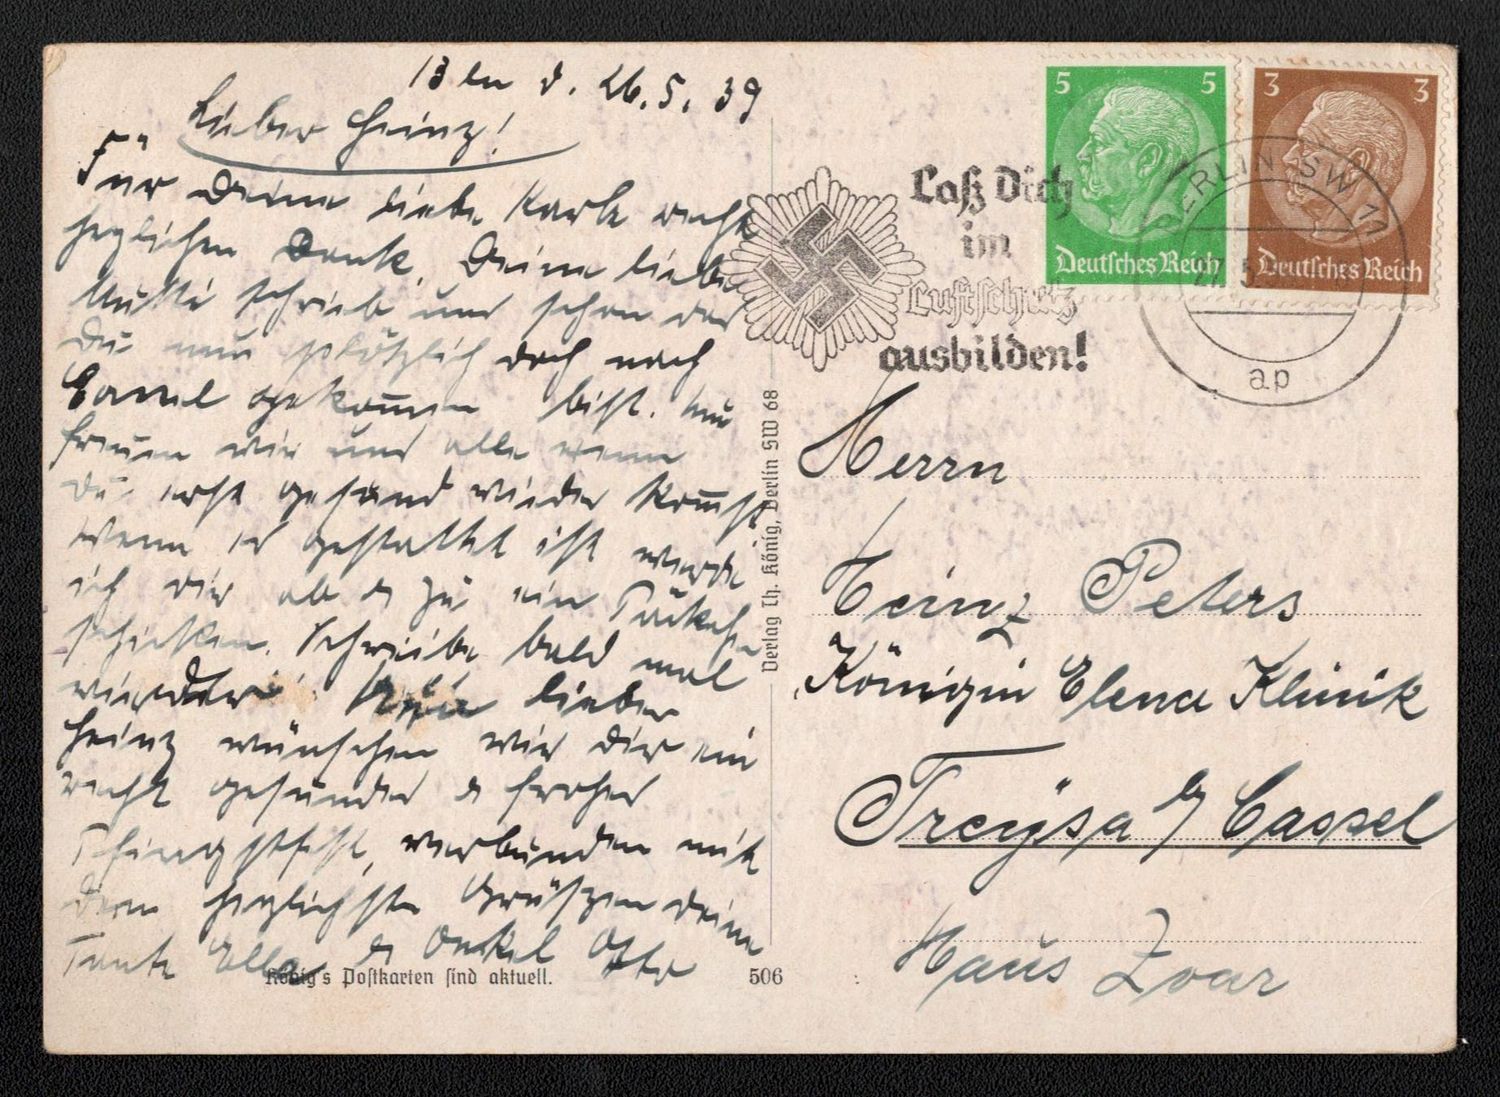 Bln d. 26.5.39
Lieber Heinz!
Für Deine liebe Karte recht
herzlichen Dank. Deine liebe
Mutti schrieb uns schon das
Du nun plötzlich doch nach
Cassel gekom̅en bist. Nu
freuen wir uns alle wenn
Du erst gesund wieder kom̅st
wenn es gestattet ist werde
ich dir ab & zu ein Päckch
schicken. Schreibe bald mal
wieder. Nun lieber
Heinz wünschen wir dir ein
recht gesundes & frohes
Pfingstfest, verbunden mit
den herzlichsten Grüßen deine
Tante Ella & Onkel Otto
König's Postkarten sind aktuell.
506
Verlag Th. König, Berlin SW 68
Laß Dich
im
Luftschutz
ausbilden!
5 5
Deutsches Reich
3 3
Deutsches Reich
BERLIN SW 11
ap
Herrn
Heinz Peters
Königin Elena Klinik
Treysa b/ Cassel
Haus Zoar